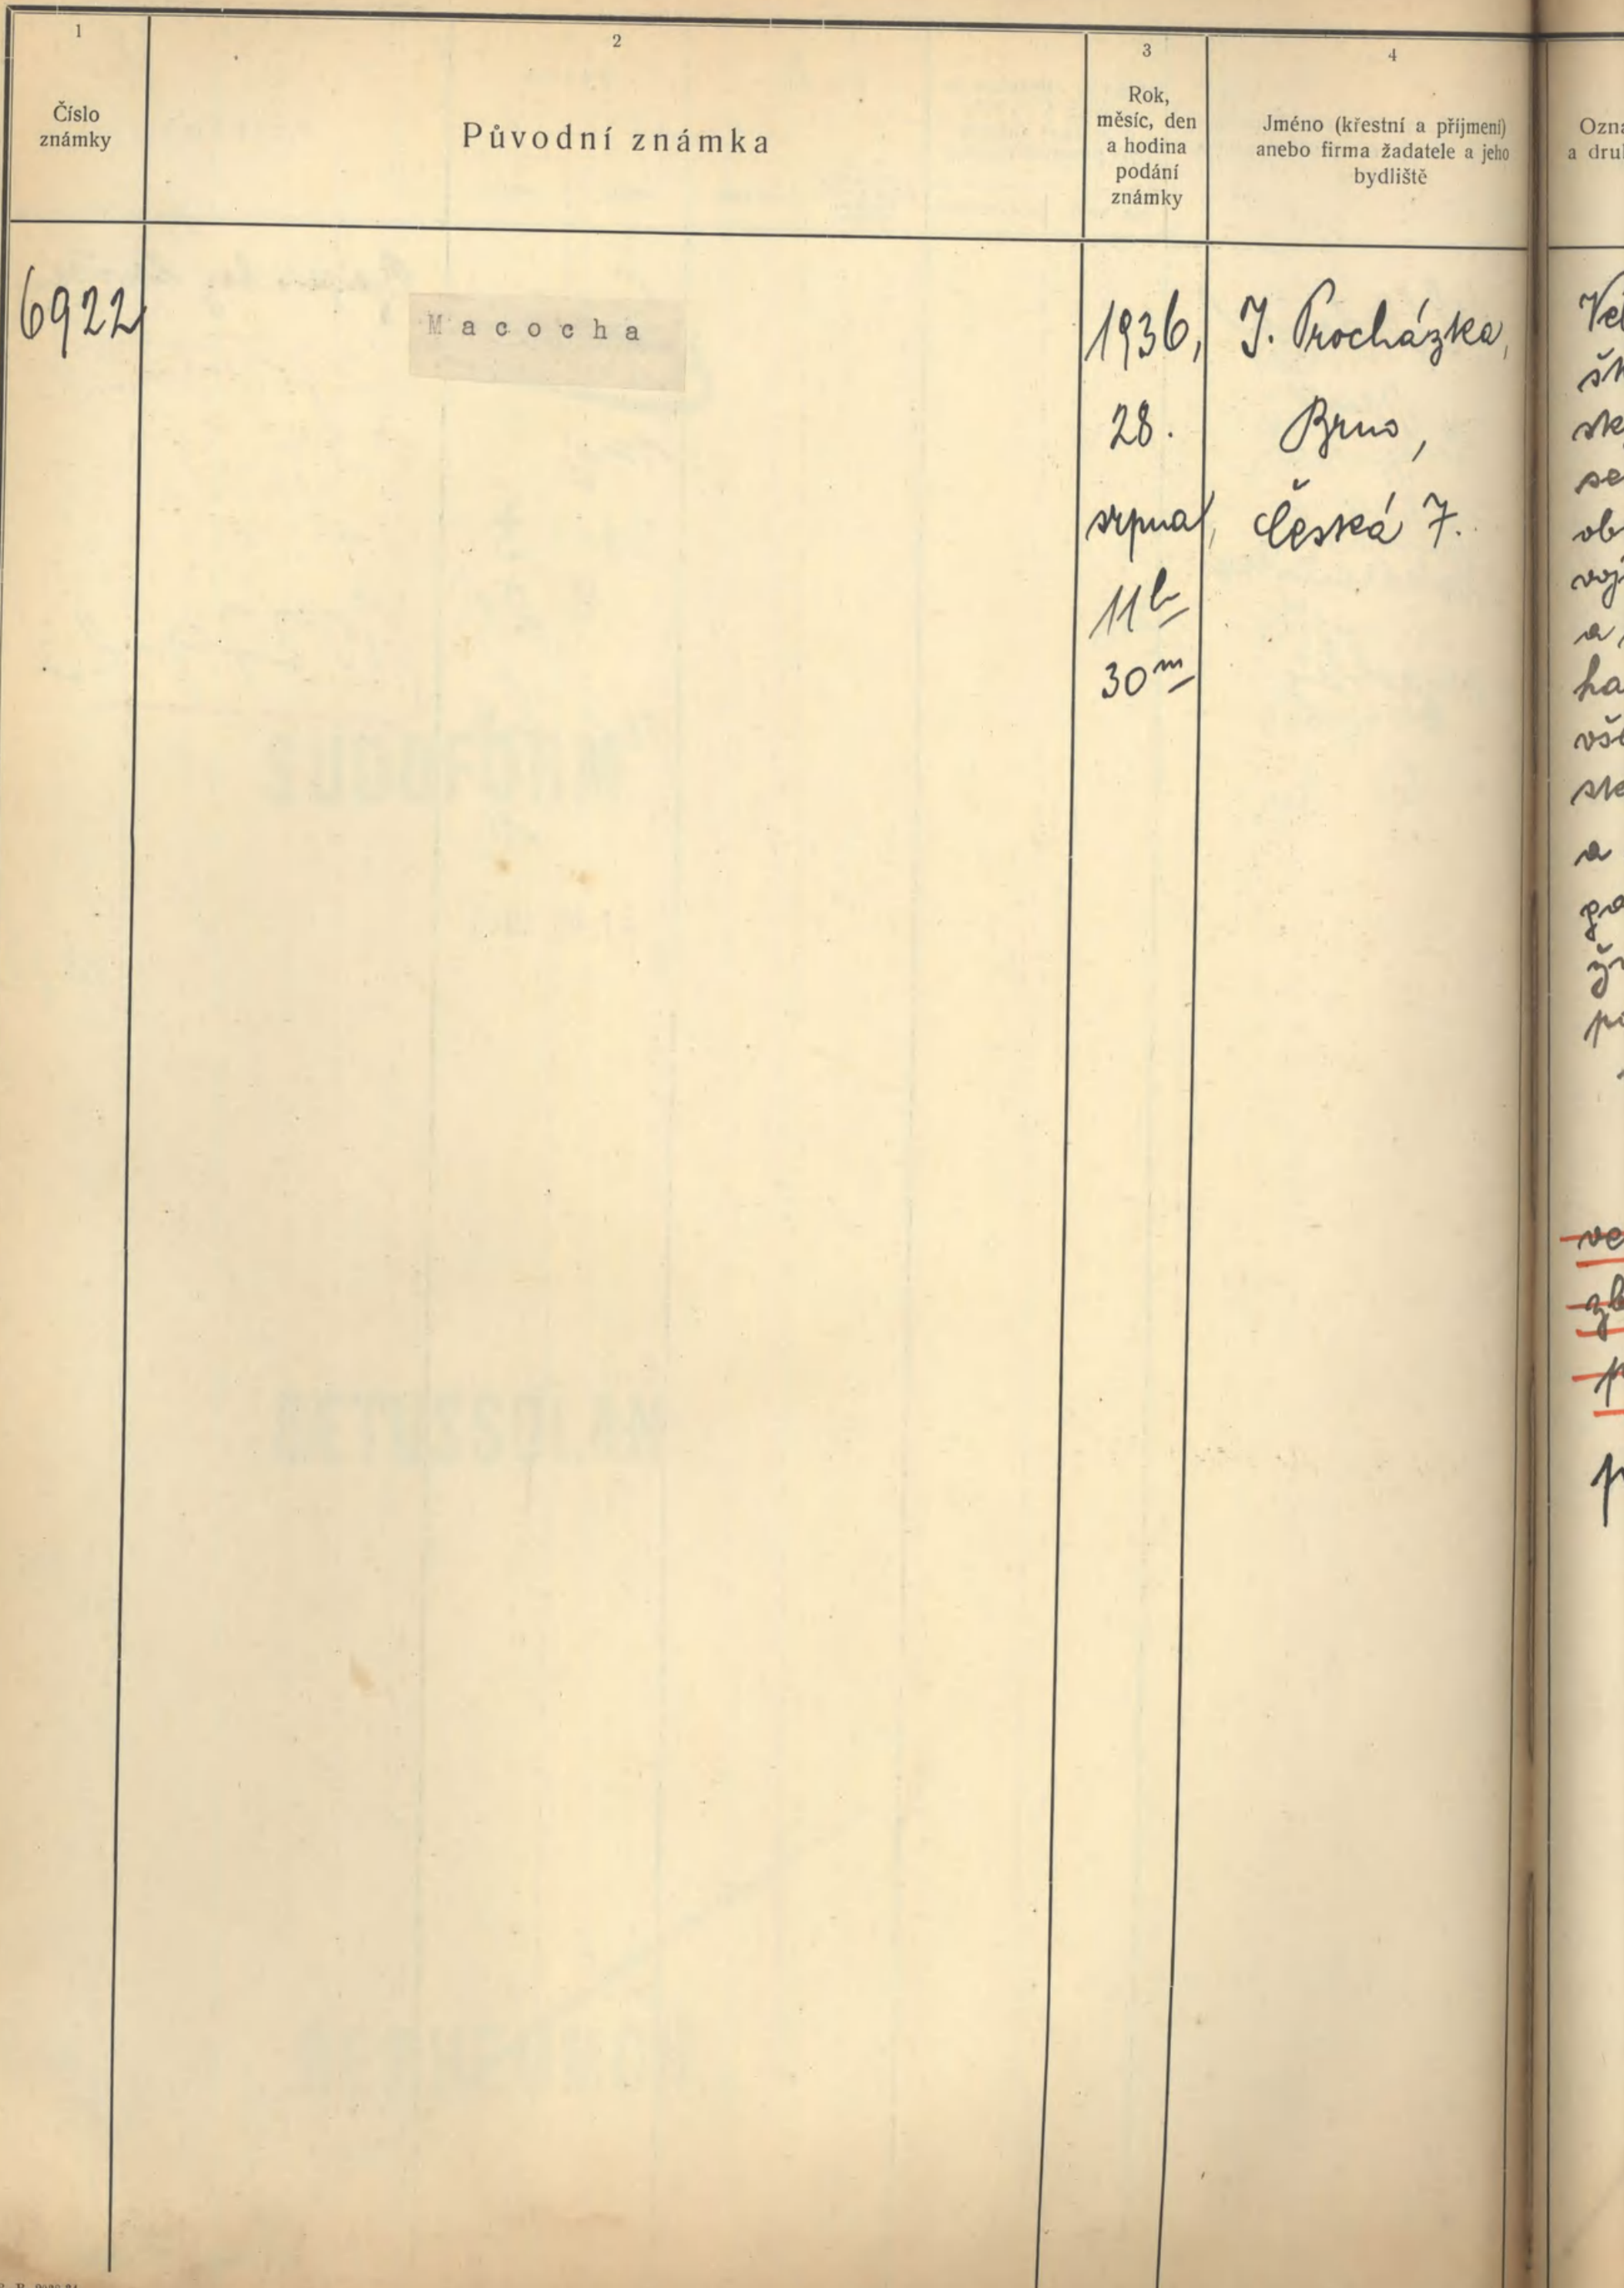 1
Číslo
známky
2
Původní známka
3
Rok,
měsíc, den
a hodina
podání
známky
4
Jméno (křestní a příjmení)
anebo firma žadatele a jeho
bydliště
6922
Macocha
1936,
28.
srpna,
11h
30m
J. Procházka,
Brno,
Česká 7.
Ozna
a dru
Vel
ha
a